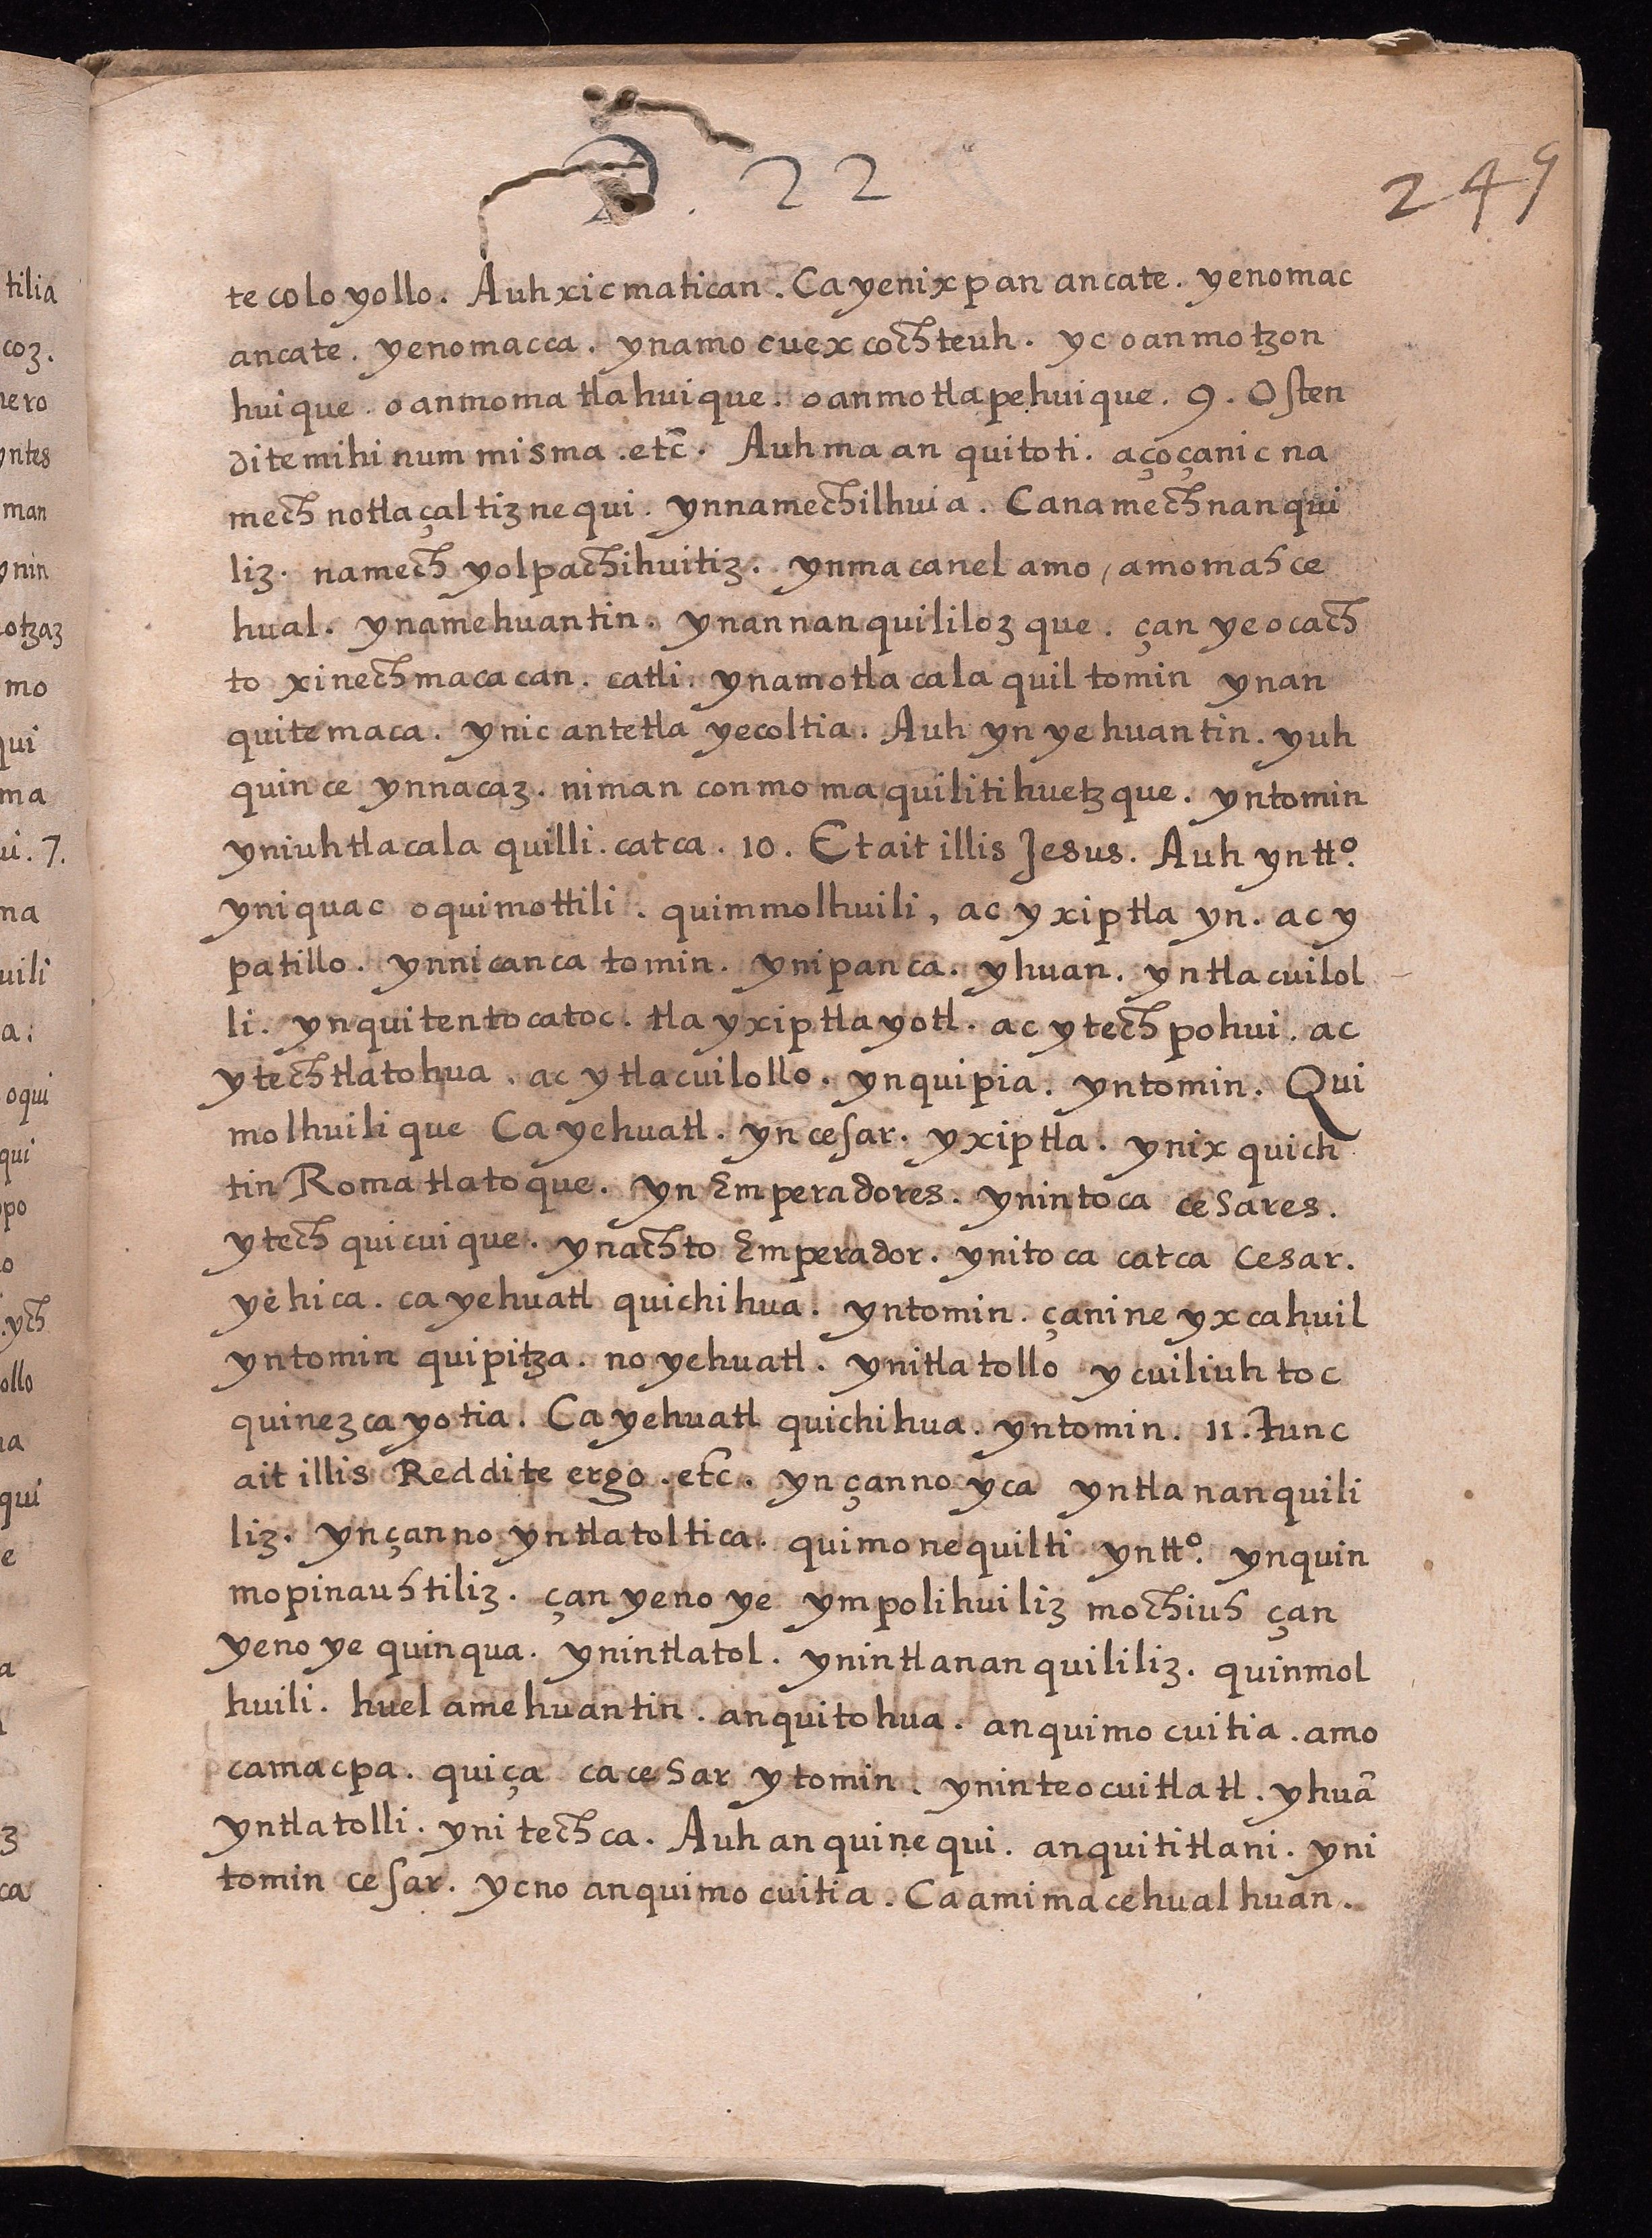 D. 22
249
tilia
coz.
nero
yntes
man
ynin
otzaz
mo
qui
ma
ui. 7.
na
uili
a.
oqui
qui
opo
o
.ych
ollo
na
qui
e
a
z
ca
tecoloyollo. Auh xicmatican. Cayenixpan ancate. yenomac
ancate. yenomacca. ynamo cuexcochteuh. yc oanmotzon
huique. oanmomatlahuique. oanmotlapehuique. 9. Osten
dite mihi nummisma. etc̃. Auh ma an quitoti. açoçanic na
mech notlaçaltiz nequi. ynnamechilhuia. Canamechnanqui
liz. namech yolpachihuitiz. ynmacanel amo, amomahce
hual. ynamehuantin. ynannanquililozque. çan yeocach
to xinechmacacan. catli. ynamotlacalaquil tomin ynan
quitemaca. ynic antetlayecoltia. Auh yn yehuantin. yuh
quin ce ynnacaz. niman conmomaquilitihuetzque. yntomin
yniuhtlacalaquilli. catca. 10. Et ait illis Jesus. Auh yntt.º
yniquac oquimottili. quimmolhuili, ac yxiptla yn. ac y
patillo. ynnicanca tomin. ynipanca. yhuan. yntlacuilol
li. ynquitentocatoc. tlayxiptlayotl. ac ytech pohui. ac
ytechtlatohua. ac ytlacuilollo. ynquipia. yntomin. Qui
molhuilique Ca yehuatl. yn cesar. yxiptla. ynixquich
tin Roma tlatoque. yn Emperadores. ynintoca cesares.
ytech quicuique. ynachto Emperador. ynitoca catca Cesar.
yehica. ca yehuatl quichihua. yntomin. çanineyxcahuil
yntomin quipitza. no yehuatl. ynitlatollo ycuiliuhtoc
quinezcayotia. Ca yehuatl quichihua. yntomin. 11. Tunc
ait illis Reddite ergo. etc̃. yn çanno yca yntlananquili
liz. ynçanno yntlatoltica. quimonequilti yntt.º ynquin
mopinauhtiliz. çan yeno ye ympolihuiliz mochiuh çan
yeno ye quinqua. ynintlatol. ynintlananquililiz. quinmol
huili. huel amehuantin. anquitohua. anquimocuitia. amo
camacpa. quiça ca cesar ytomin. yninteocuitlatl. yhuã
yntlatolli. yni techca. Auh anquinequi. anquititlani. yni
tomin cesar. ycno anquimocuitia. Caamimacehualhuan.